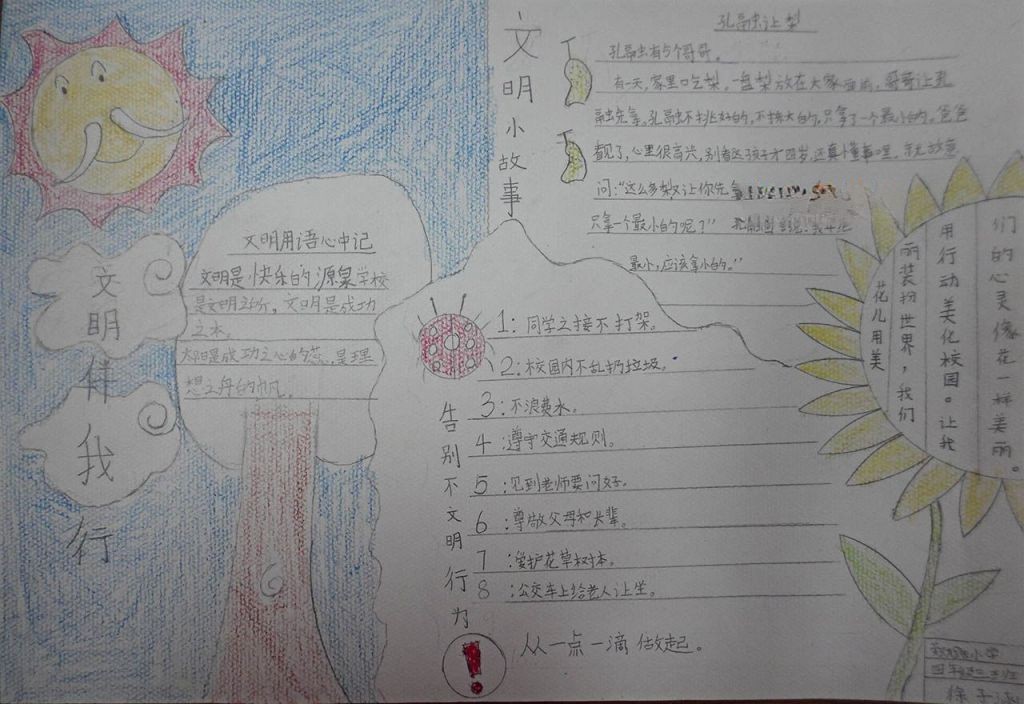 文明伴我行
文明用语心中记
文明是快乐的源泉学校
是文明之所,文明是成功
之本。
想之舟的帆。
文明小故事
孔融让梨
孔融有5个哥哥。
有一天,家里吃梨。一盘梨放在大家面前,哥哥让孔
融先拿。孔融不挑好的,不拣大的,只拿了一个最小的。爸爸
看见了,心里很高兴,别看这孩子才四岁,还真懂事哩。就故意
问:“这么多梨又让你先拿
只拿一个最小的呢?”
最小,应该拿小的。”
告别不文明行为
1:同学之接不打架。
2:校园内不乱扔垃圾。
3:不浪费水。
4:遵守交通规则。
5:见到老师要问好。
6:尊敬父母和长辈。
7:爱护花草树木。
8:公交车上给老人让坐。
!
从一点一滴做起。
花儿用美
丽装扮世界,我们
用行动美化校园。让我
们的心灵像花一样美丽。
小学